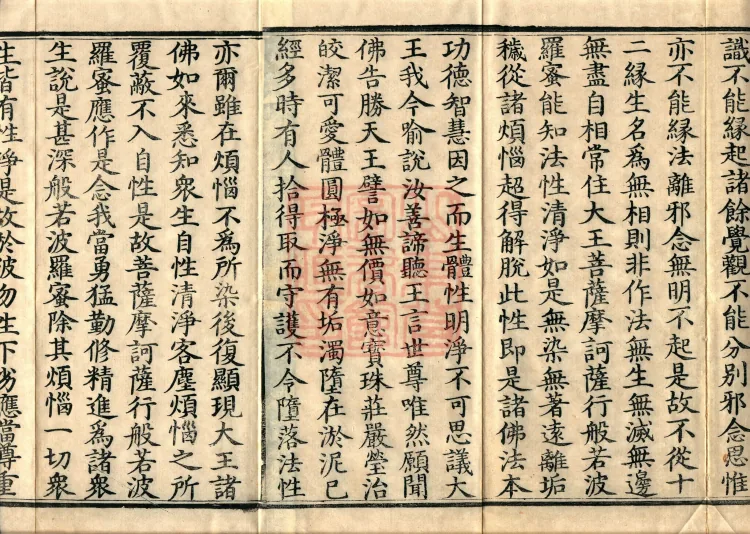 識不能緣起諸餘覺觀不能分別邪念思惟
亦不能緣法離邪念無明不起是故不從十
二緣生名爲無相則非作法無生無滅無邊
無盡自相常住大王菩薩摩訶薩行般若波
羅蜜能知法性清淨如是無染無著遠離垢
穢從諸煩惱超得解脫此性即是諸佛法本
功德智慧因之而生體性明淨不可思議大
王我今喻說汝善諦聽王言世尊唯然願聞
佛告勝天王譬如無價如意寶珠莊嚴瑩治
皎潔可愛體圓極淨無有垢濁墮在淤泥已
經多時有人拾得取而守護不令墮落法性
亦爾雖在煩惱不爲所染後復顯現大王諸
佛如來悉知衆生自性清淨客塵煩惱之所
覆蔽不入自性是故菩薩摩訶薩行般若波
羅蜜應作是念我當勇猛勤修精進爲諸衆
生說是甚深般若波羅蜜除其煩惱一切衆
生皆有性淨是故於彼勿生下劣應當尊重